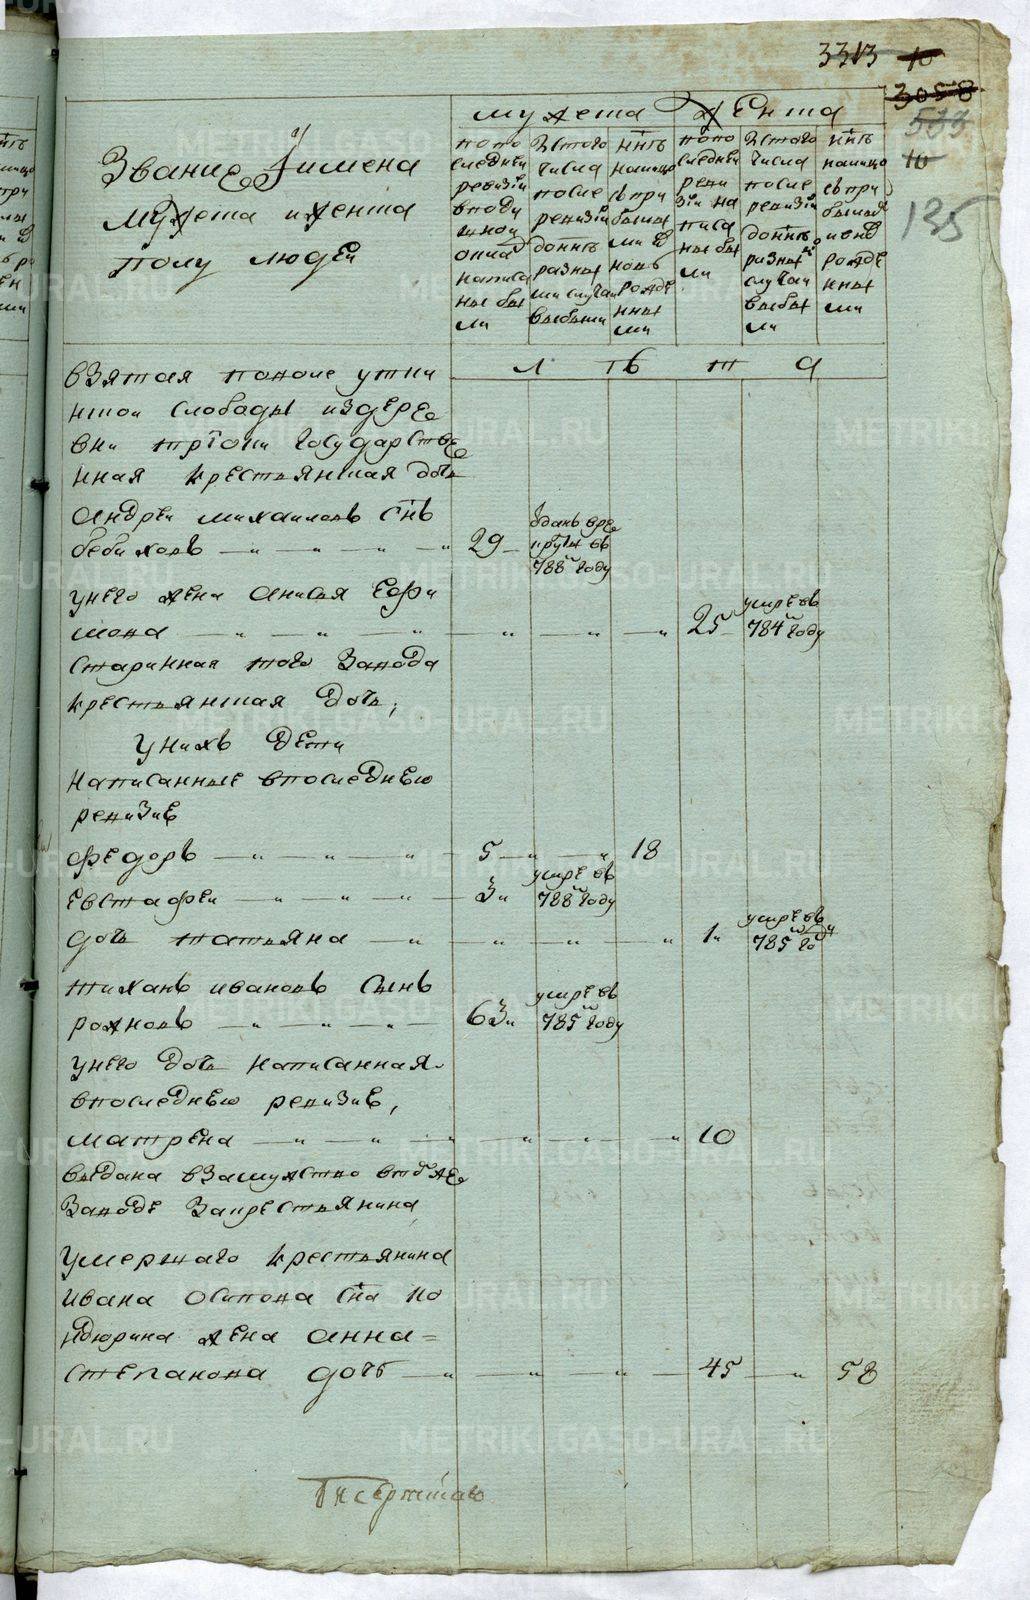 3313 10
3058
533
10
135
Звание и имена
мужеска и женска
полу людеи
мужеска
женска
попо
следнеи
ревизiи
написа
ные бы
ли
Изтого
числа
после
ревизiи
разны
ми случаи
выбыли
нне
налицо
съ при
былы
ми и
вновь
рожде
нны
ми
попо
следнеи
реви
зiи на
писа
ные бы
ли
Изтого
числа
после
ревизiи
разны
случаи
выбы
ли
нне
налицо
съ при
былыя
и внов
рожде
нны
ми
л ѣ т а
взятая
слободы издере
вни государстве
нная крестьянская дочь
андреи михаиловъ снъ
бабиховъ 29 зданъ вре
круты въ
788м году
унего жена анисья ефи
мова 25 умре въ
784м году
старинная того завода
крестьянская дочь,
унихъ дети
написанные впоследнею
ревизию
федоръ 5 18
евстафеи 3 умре въ
788м году
дочь татьяна 1 умре въ
785м году
тиханъ ивановъ сынъ
рожновъ 63 умре въ
785м году
унего дочь написанная
впоследнею ревизию,
матрена 10
выдана взамужство втомже
заводе закрестьянина
умершаго крестьянина
ивана осипова сна ко
ждюрина жена анна=
степанова дочь 45 58